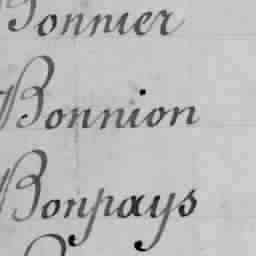 Bonnier
Bonnion
Bonpays